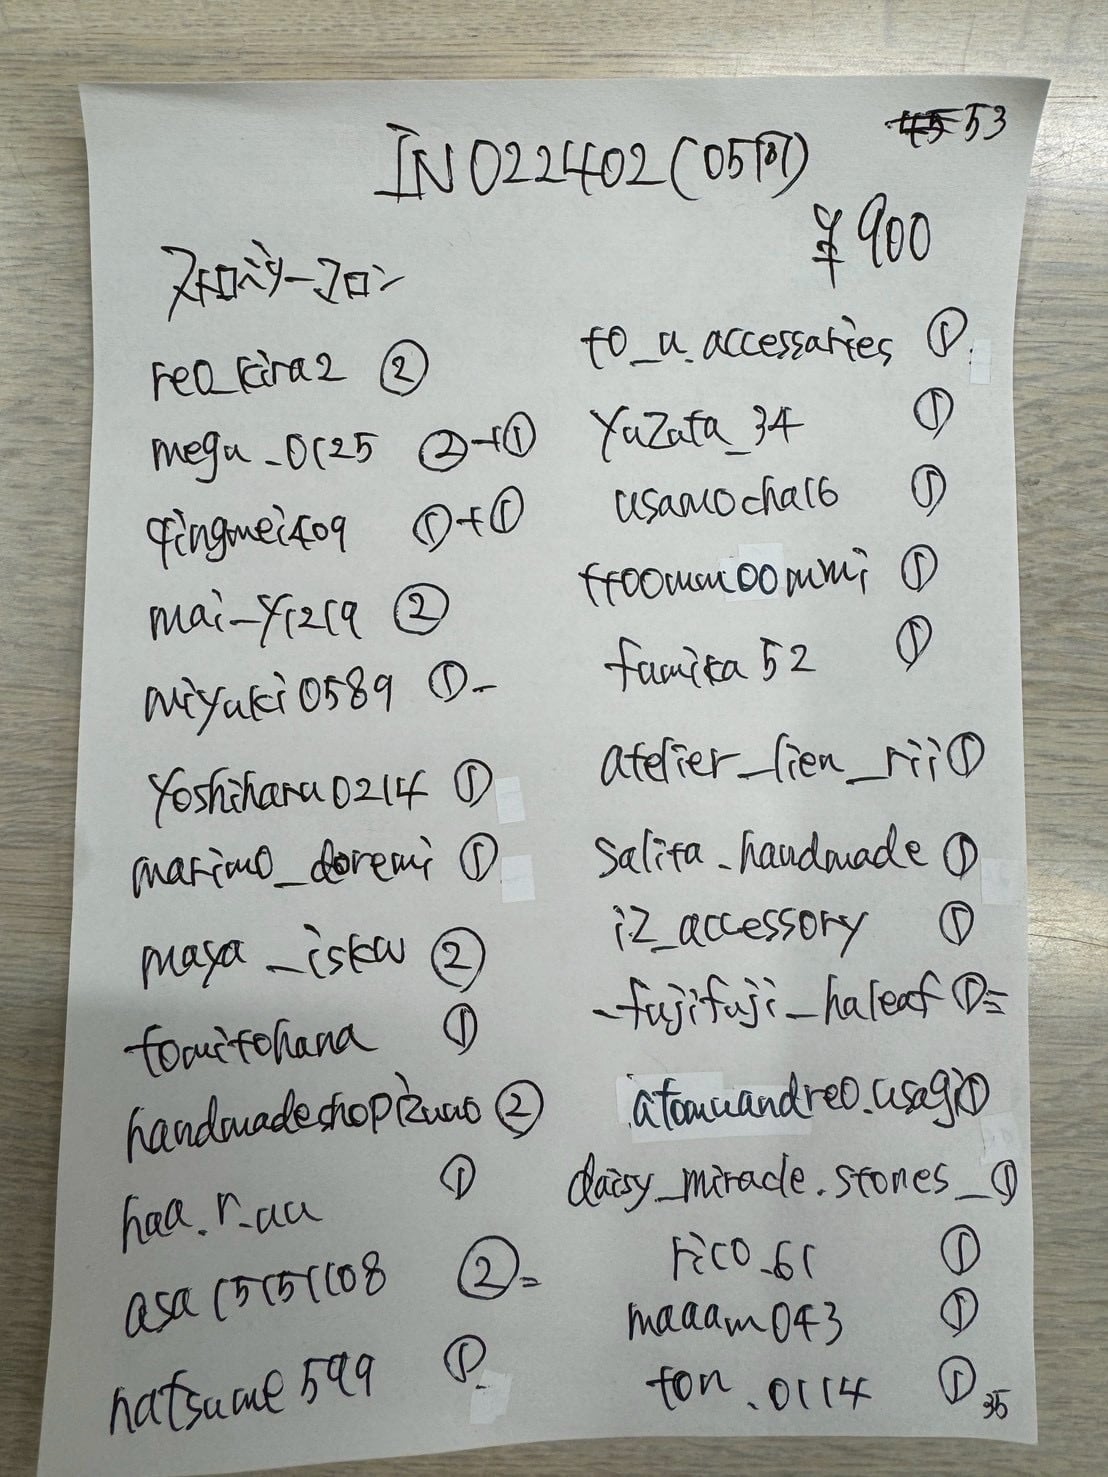 45 53
IN022402(05団)
¥900
ストロベリーコロン
reo_kira2 ②
megu_0125 ②+①
qingmei409 ①+①
mai_y1219 ②
miyuki0589 ①-
yoshiharu0214 ①
marimo_doremi ①
maya_isku ②
tomitohana ①
handmadeshopizumo ②
haa.r_uu ①
asa15151108 ②=
natsume599 ①
to_u.accessaries ①
yuzuta_34 ①
usamocha16 ①
ttoomm00mmi ①
fumika52 ①
atelier_lien_rii ①
salita_handmade ①
iz_accessory ①
-fujifuji_haleaf ①=
atomuandreo.usagi ①
daisy_miracle.stones_ ①
rico_61 ①
maaam043 ①
ton.0114 ①
35